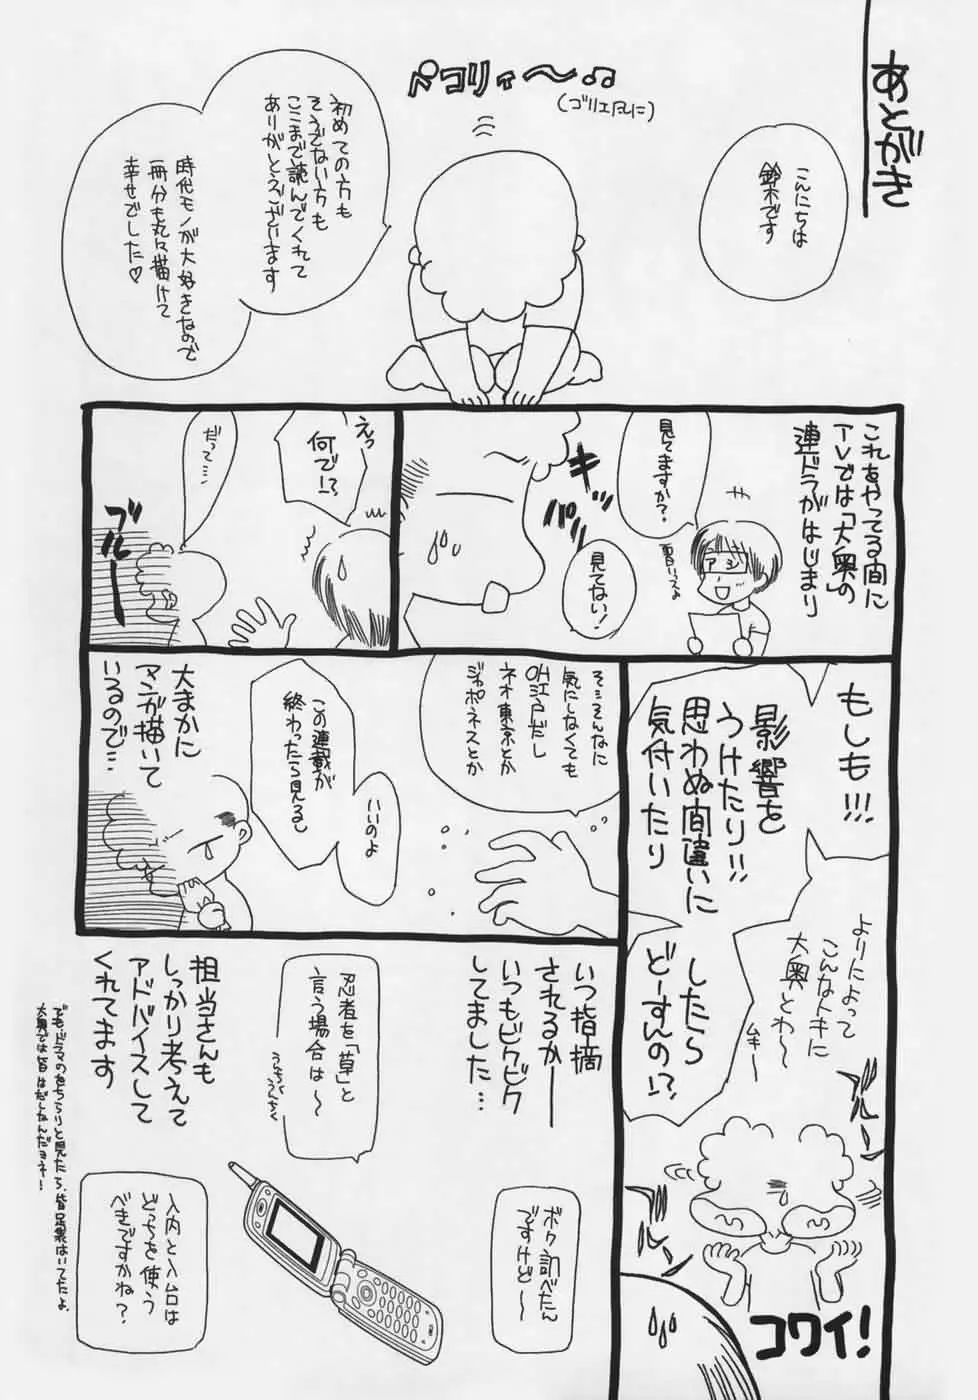 あとがき
こんにちは
鈴木です
ペコリィ〜♫
(ゴリエ風に)
初めての方も
そうでない方も
ここまで読んでくれて
ありがとうございます
時代モノが大好きなので
一冊分も丸々描けて
幸せでした♡
これをやってる間に
TVでは「大奥」の
連ドラがはじまり
アシ
見てますか?
キッ
パリ
見てない!
えっ
何で!?
だって…
ブルー
もしも!!!
影響を
うけたり!!
思わぬ間違いに
気付いたり
したら
どーすんの!?
よりによって
こんなトキに
大奥とわ〜
ムキー
ブルー
ブルル
コワイ!
そ…そんなに
気にしなくても
OH江戸だし
ネオ東京とか
ジャポネスとか
いいのよ
この連載が
終わったら見るし
大まかに
マンガ描いて
いるので…
いつ指摘
されるかー
いつもビクビク
してました…
忍者を「草」と
言う場合は〜
うんちくうんちく
担当さんも
しっかり考えて
アドバイスして
くれてます
ボク調べたん
ですけど〜
入内と入台は
どっちを使う
べきですかね?
でも、ドラマのをちらりと見たら、皆足袋はいてたよ。
大奥では皆はだしなんだヨネー!